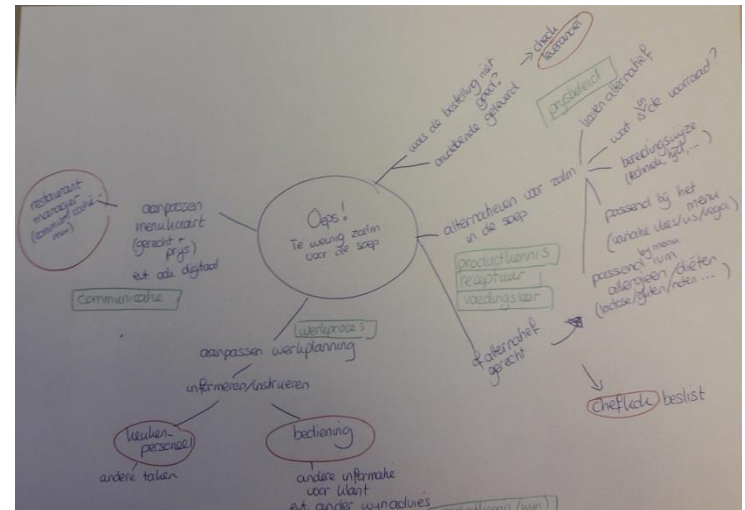 Oeps!
Te weinig zalm
voor de soep
was de bestelling niet
goed?
onvoldoende geleverd
→ check
leverancier
prijsbeleid
alternatieven voor zalm
in de soep
kosten alternatief
wat is in de voorraad?
bereidingswijze
(techniek, tijd, ...)
passend bij het
menu
(variatie vlees/vis/vega)
passend bij menu
ivm
allergieën/diëten
(lactose/gluten/noten ...)
productkennis
receptuur
voedingsleer
of alternatief
gerecht
chefkok beslist
restaurant
manager
(communicatie
aanpassen
menukaart
(gerecht +
prijs)
evt ook digitaal
communicatie
werkproces
aanpassen werkplanning
informeren/instrueren
keuken-
personeel
andere taken
bediening
andere informatie
voor klant
evt ander wijnadvies